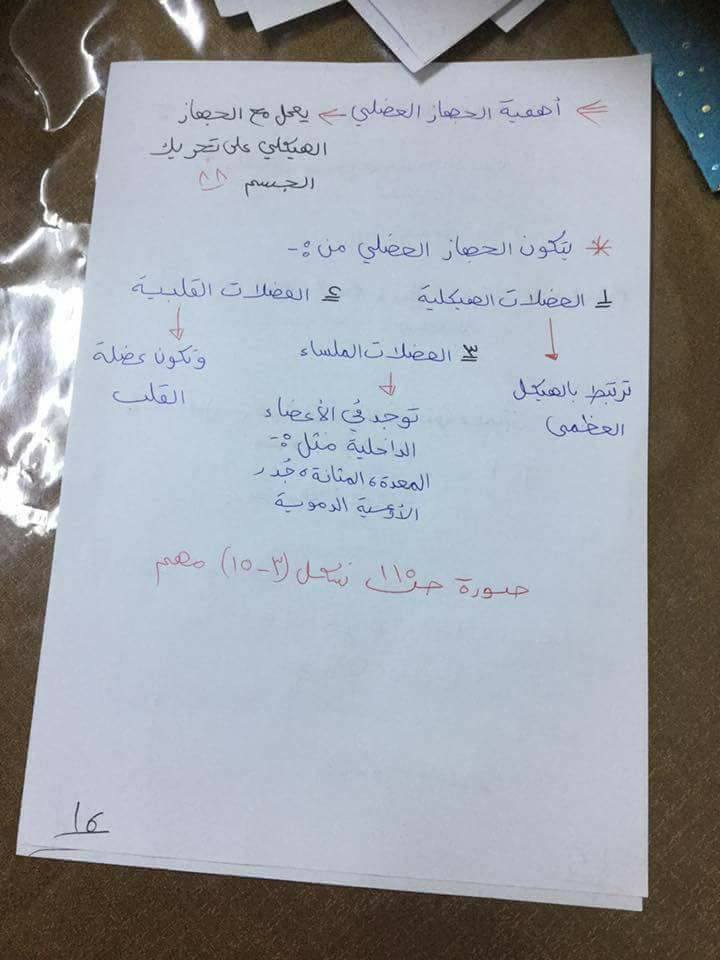 أهمية الجهاز العضلي ← يعمل مع الجهاز
الهيكلي على تحريك
الجسم ^^
* يتكون الجهاز العضلي من :-
١ العضلات الهيكلية
ترتبط بالهيكل
العظمي
٢ العضلات القلبية
وتكون عضلة
القلب
٣ العضلات الملساء
توجد في الأعضاء
الداخلية مثل :-
المعدة، المثانة، جُدر
الأوعية الدموية
صورة ص١١٥ شكل (٣-١٥) مهم